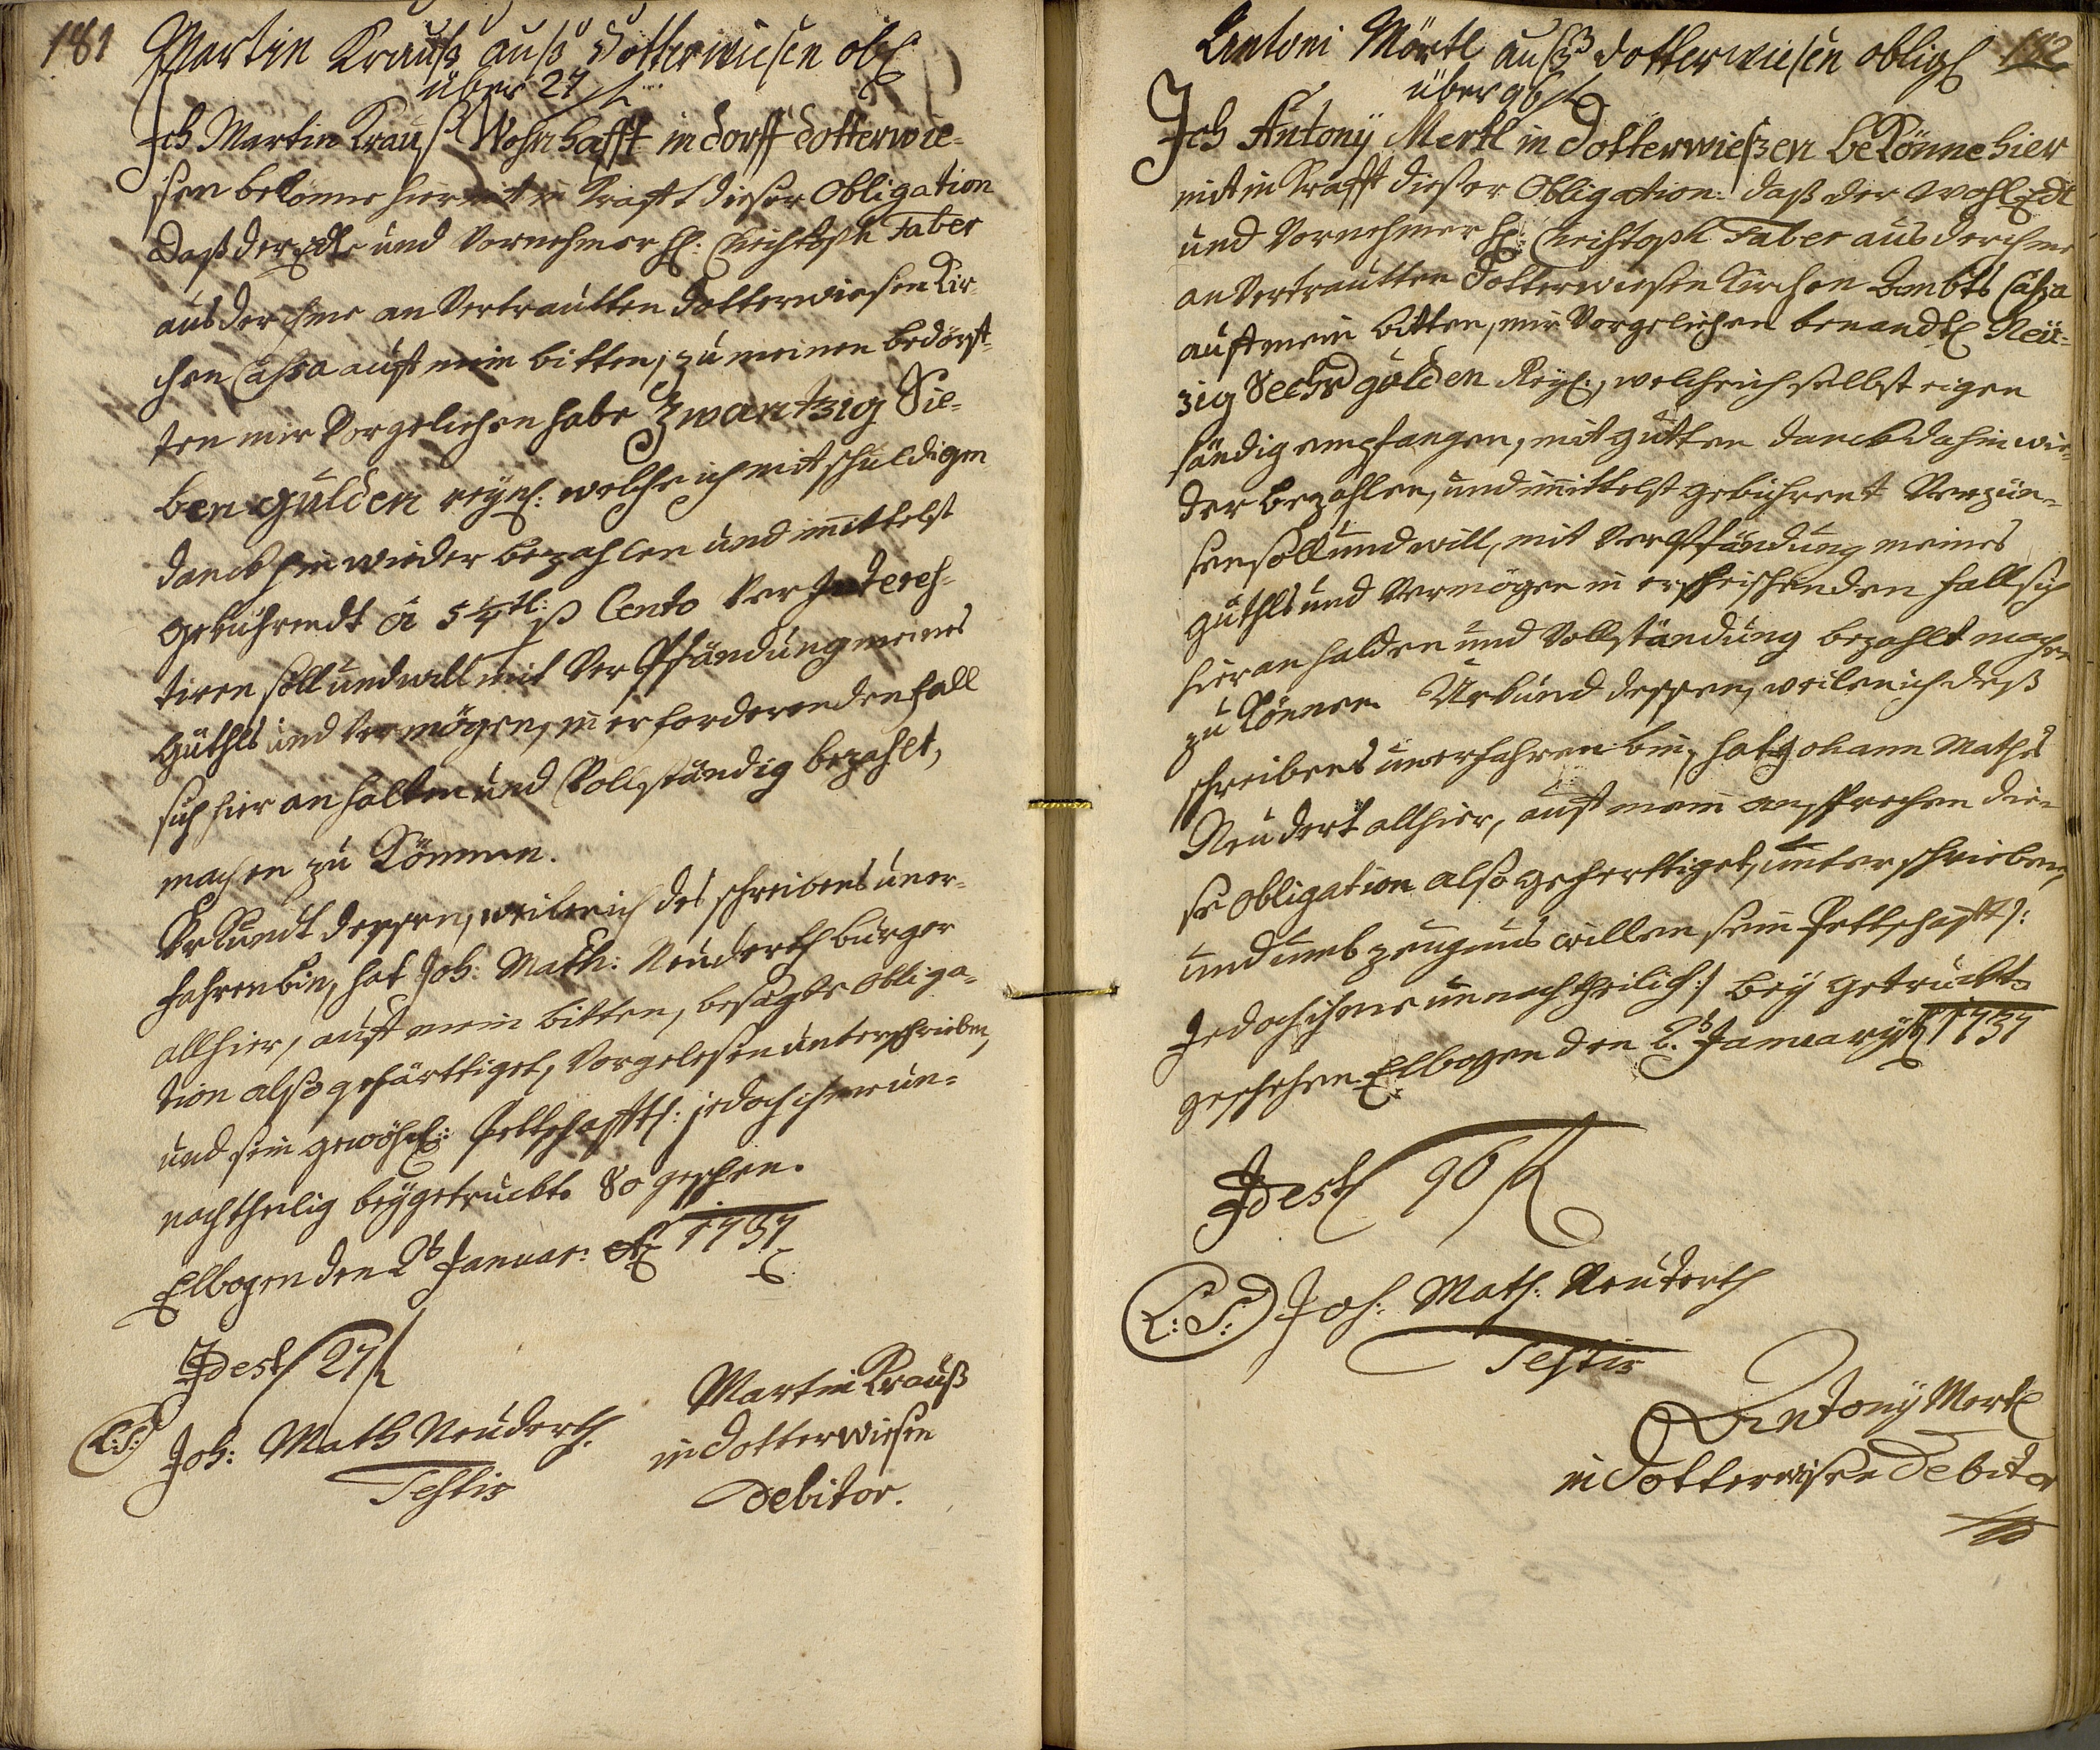 181
Martin Krauß auß dotterwiesen obl:
über 27 fl
Ich Martin Krauß Wohnhafft in dorff dotterwie-
sen bekönne hiermit in Krafft dießer Obligation
daß der Edle und Vornehmer H: Christoph Faber
aus der ihme an Vertrautten dotterwiesen Kir-
chen Cassa auff mein bitten, zu meinen bedörff-
ten mir Vorgeliehen habe Zwantzig Sie-
ben gulden reynl: welche ich mit schuldigen
danck hin wieder bezahlen und immittelst
gebührendt à 5 ¼ tl: p Cento Ver Interes-
tiren soll und will mit Ver Pfändung meines
Güthls und Vermögen, in erforderenden fall
sich hier an halten und Vollständig bezahlt,
machen zu Können.
Urkundt dessen, weilen ich des schreibens uner-
fahren bin, hat Joh: Math: Neuderth burger
allhier, auff mein bitten, besagte obliga-
tion also gefärttiget, Vorgelesen unterschrieben,
und sein gewöhnl: Pettschafft /: jedoch ihme un-
nachtheilig beygetruckt. So geschehen.
Elbogen den 2t Januar: 1737
Idest 27 fl
L:S: Joh: Math Neuderth.
Testis
Martin Krauß
in dotterwiesen
Debitor.
182
Antoni Mörtl außß dotterwiesen oblig
über 96 fl
Ich Antonÿ Mertl in dotterwießen beKönne hier
mit in Krafft dießer Obligation: daß der WohlEdl
und Vornehmer H: Christoph Faber aus der ihme
an Vertrautten dotterwiesen Kirchen Ambts Cassa
auff mein bitten, mir Vorgeliehen benandtl Neü-
zig Sechs gulden Reyl:, welche ich selbst eigen
händig empfangen, mit gutten danckh dahin wie-
der bezahlen, und immittelst gebührent Verzün-
sen soll und will, mit VerPfändung meines
guthls und Vermögen in erheischenden fall sich
hier an halden und Vollständung bezahlt machen
zu Können. Urkund dessen, weilen ich deß
schreibens unerfahren bin, hat Johann Maths
Neudert allhier, auff mein ansprechen die-
se obligation also geferttiget, unterschrieben,
und umb zeugnus willen sein Pettschafft /:
Jedoch ihme unnachtheilich :/ bey getruckt.
geschehen Elbogen den 2t January 1737
Idest 96 fl
L:S: Joh: Math: Neuterth
Testis
Antonÿ Mertl
in dotterwisen Debitor